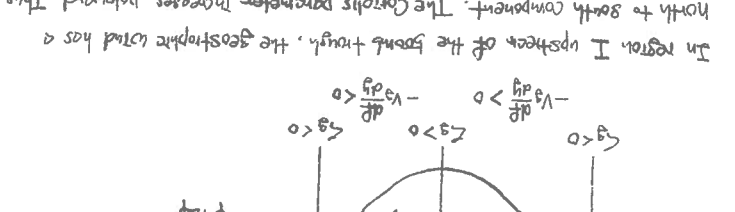 ζg<0 ζg>0 ζg<0
-vg df/dy > 0 -vg df/dy < 0
In region I upstream of the 500mb trough, the geostrophic wind has a
north to south component. The Coriolis parameter increases poleward. Thus